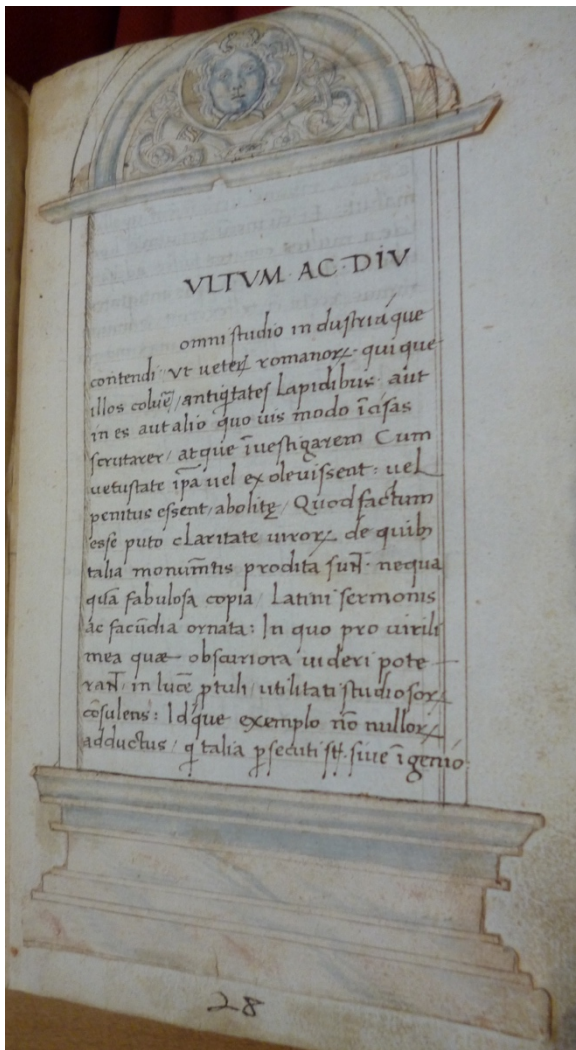 VLTVM · AC · DIV
omni studio in dustriáque
contendi · Vt ueterꝝ romanorꝝ · qui que
illos coluē / antiq̅tates Lapidibus · aut
in es aut alio quo uis modo ĩcisas
scrutarer / atque ĩuestigarem Cum
uetustate ip̅a uel ex oleuissent : uel
penitus essent / abolitę / Quod factum
esse puto cLaritate uirorꝝ de quib
talia monum̅tis prodita sun̅t · nequa
qua̅ fabulosa copia / Latini sermonis
ac facũdia ornata : In quo pro uirili
mea quæ obscuriora uideri pote
ran̅t / in lucē ꝑtuli / utilitati studiosorꝝ
cõsulens : Id que exemplo nõ nullorꝝ
adductus / qͥ talia ꝑsecuti st̅ · siue ĩgenio ·
28